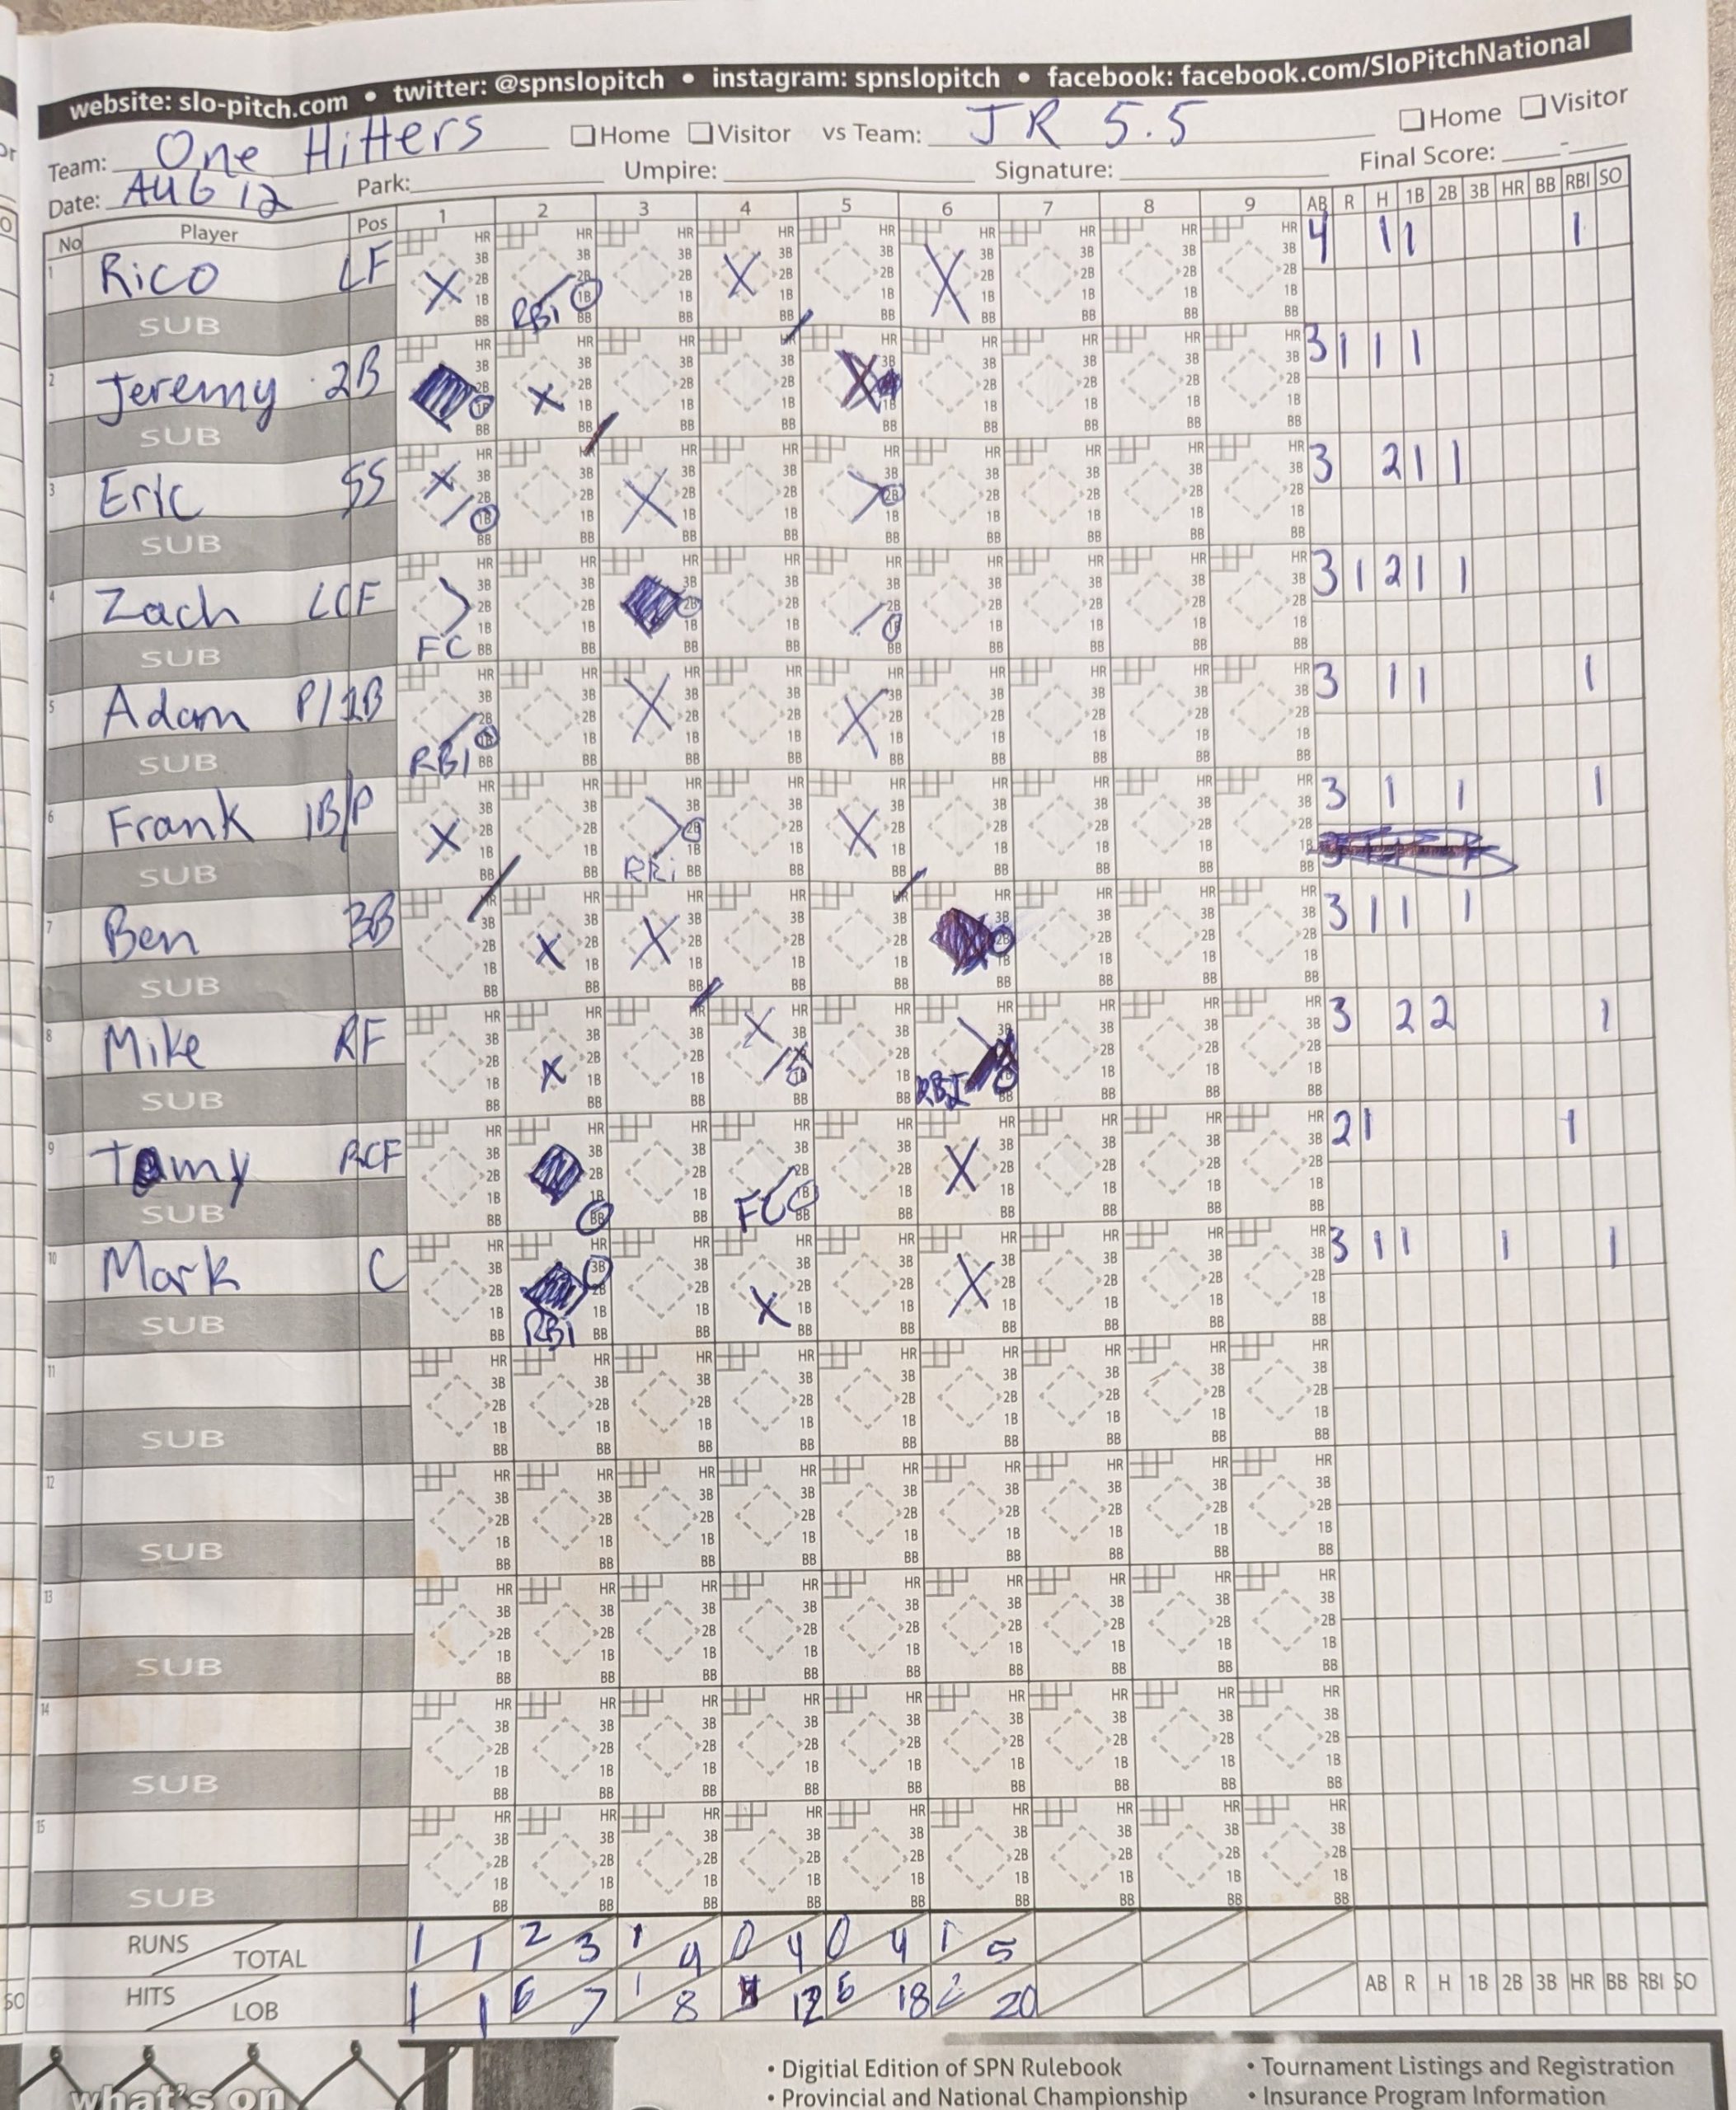 website: slo-pitch.com • twitter: @spnslopitch • instagram: spnslopitch • facebook: facebook.com/SloPitchNational
Team: One Hitters Home Visitor vs Team: JR 5.5 Home Visitor
Date: AUG 12 Park: Umpire: Signature: Final Score: -
No Player Pos 1 2 3 4 5 6 7 8 9 AB R H 1B 2B 3B HR BB RBI SO
1 Rico LF RBI 4 1 1 1
SUB
2 Jeremy 2B 3 1 1 1
SUB
3 Eric SS 3 2 1 1
SUB
4 Zach LCF FC 3 1 2 1 1
SUB
5 Adam P/1B RBI 3 1 1 1
SUB
6 Frank 1B/P RRi 3 1 1 1
SUB
7 Ben 3B 3 1 1 1
SUB
8 Mike RF RBI 3 2 2 1
SUB
9 Tomy RCF FC 2 1 1
SUB
10 Mark C RBI 3 1 1 1 1
SUB
11
SUB
12
SUB
13
SUB
14
SUB
15
SUB
RUNS TOTAL 1 1 2 3 1 4 0 4 0 4 1 5
HITS LOB 1 1 6 7 1 8 12 6 18 2 20 AB R H 1B 2B 3B HR BB RBI SO
what's on
• Digitial Edition of SPN Rulebook
• Provincial and National Championship
• Tournament Listings and Registration
• Insurance Program Information